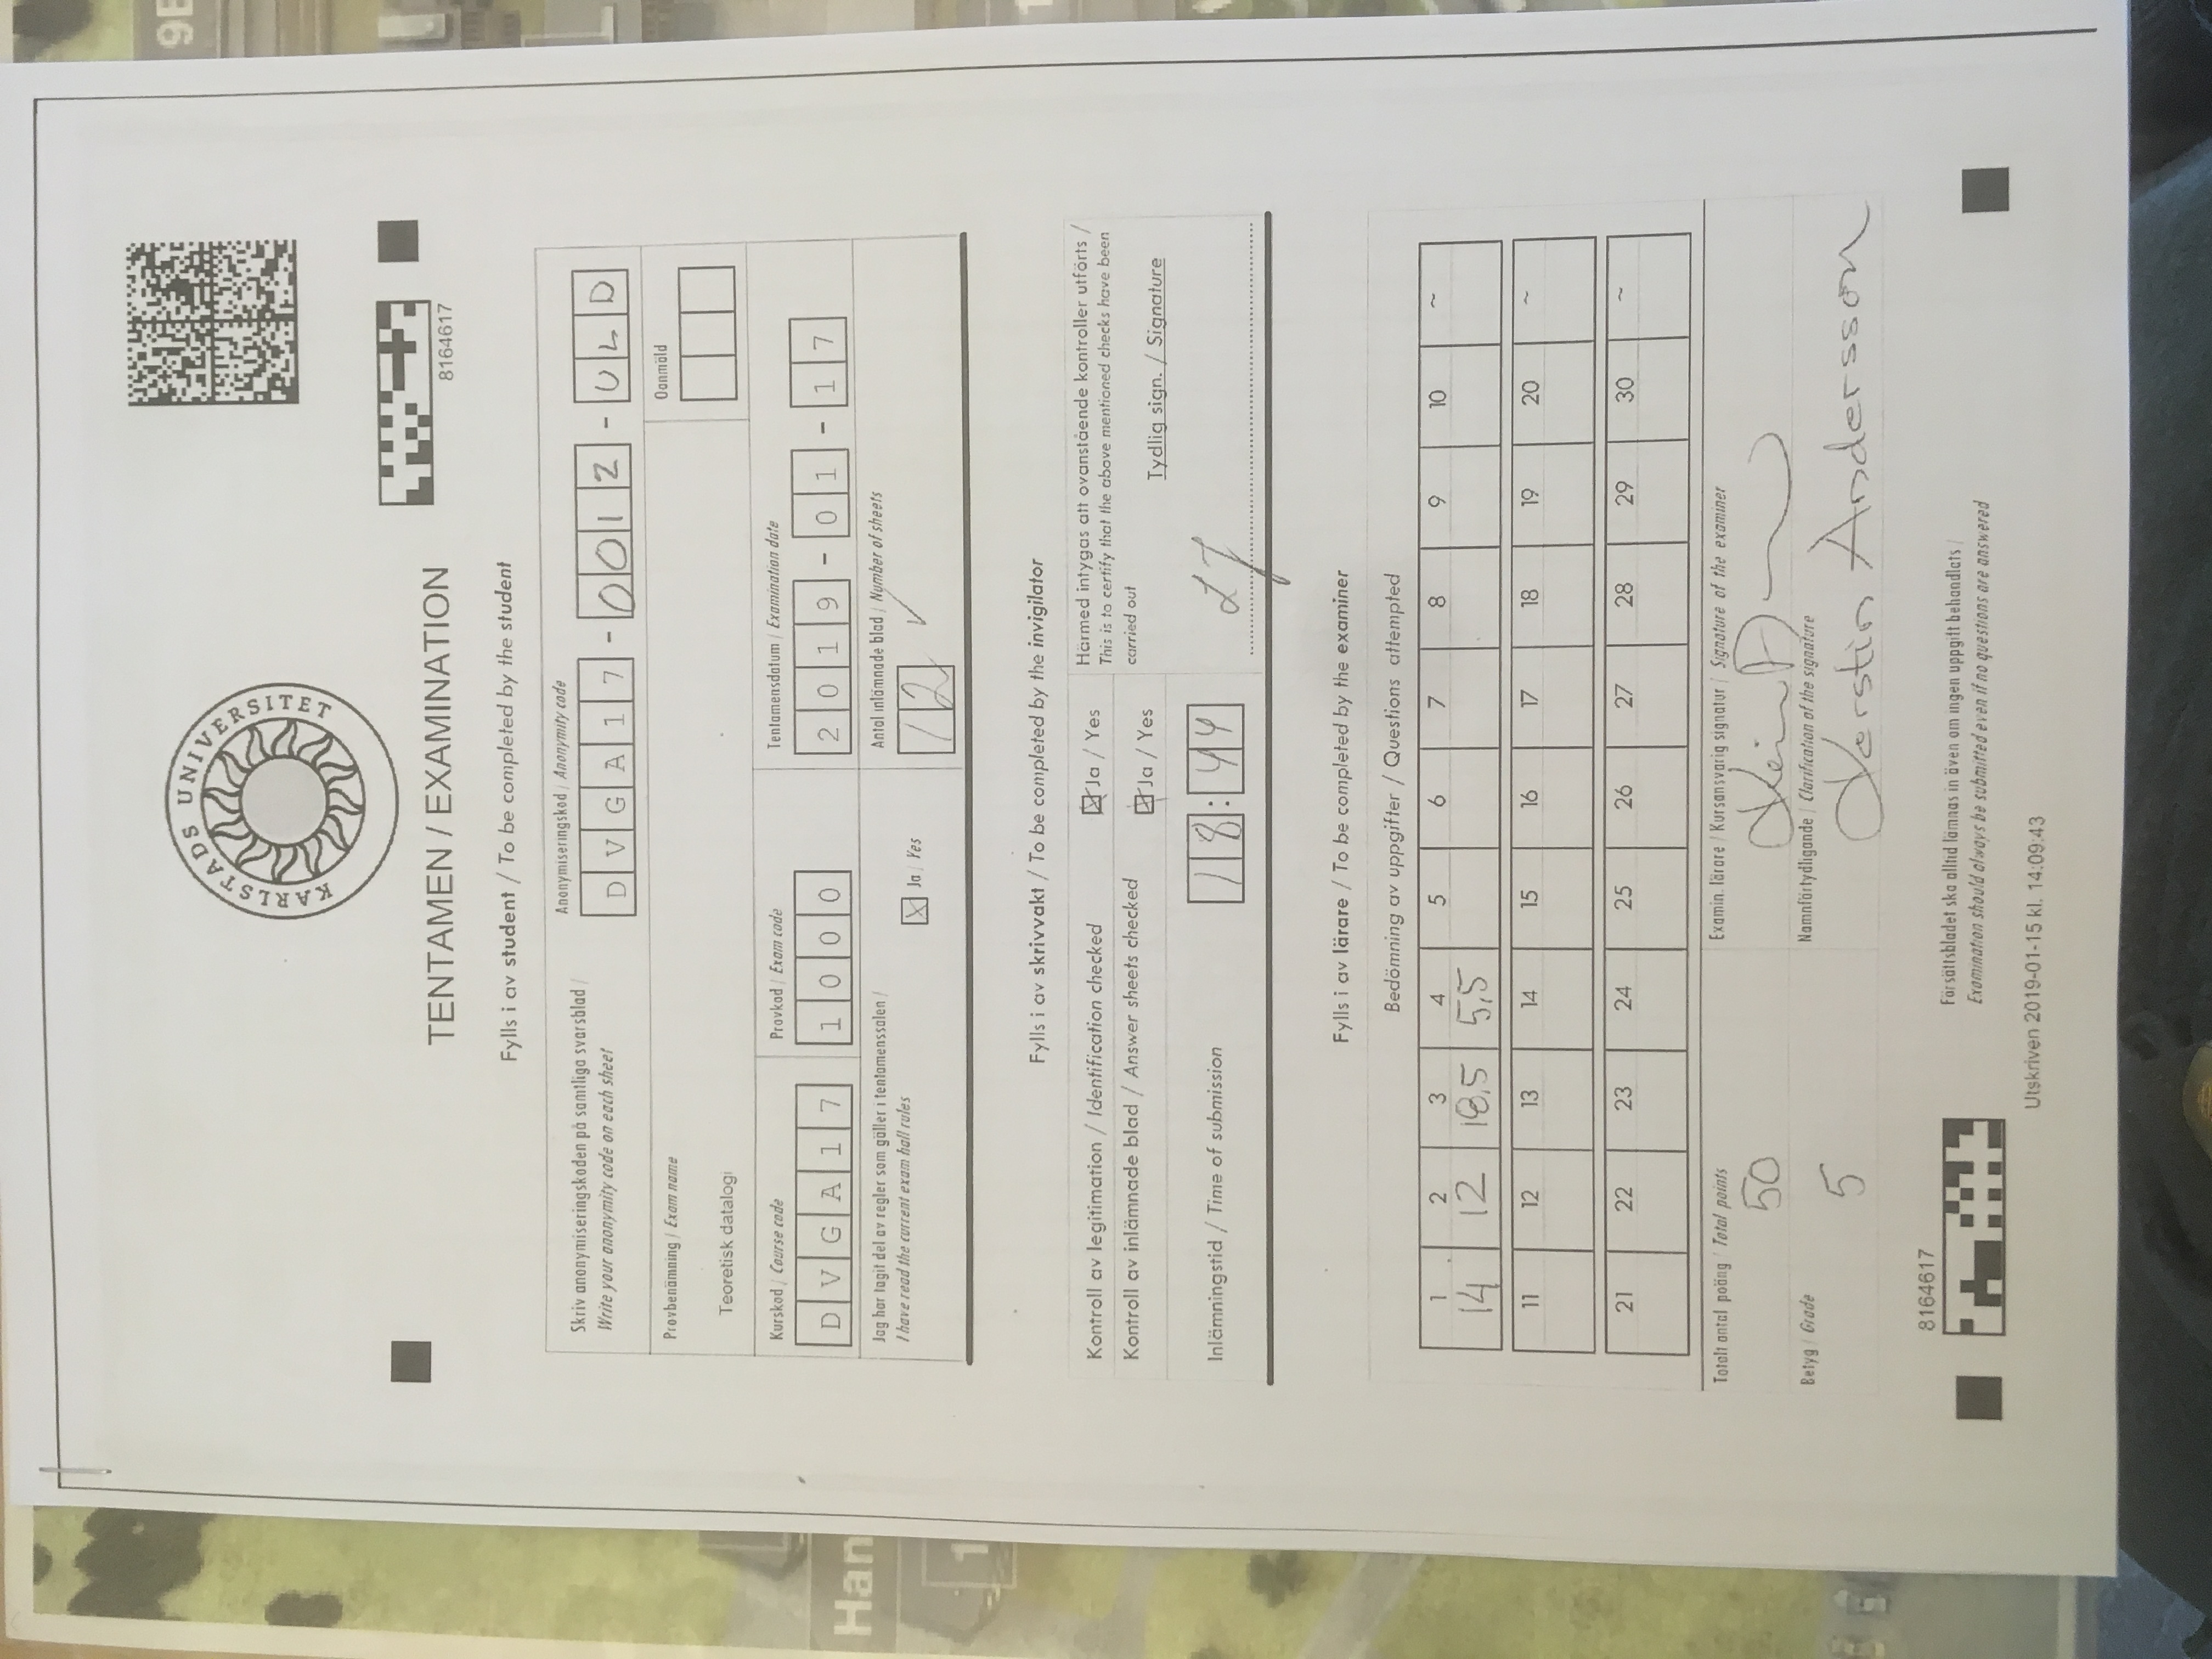 KARLSTADS UNIVERSITET
9E
TENTAMEN / EXAMINATION
8164617
Fylls i av student / To be completed by the student
Skriv anonymiseringskoden på samtliga svarsblad /
Write your anonymity code on each sheet
Anonymiseringskod / Anonymity code
DVGA17-0012-ULD
Provbenämning / Exam name
Oanmäld
Teoretisk datalogi
Kurskod / Course code
Provkod / Exam code
Tentamensdatum / Examination date
DVGA17
1000
2019-01-17
Han
Jag har tagit del av regler som gäller i tentamenssalen /
I have read the current exam hall rules
Ja / Yes
Antal inlämnade blad / Number of sheets
12
1
Fylls i av skrivvakt / To be completed by the invigilator
Kontroll av legitimation / Identification checked
Ja / Yes
Kontroll av inlämnade blad / Answer sheets checked
Ja / Yes
Härmed intygas att ovanstående kontroller utförts /
This is to certify that the above mentioned checks have been
carried out
Tydlig sign. / Signature
Inlämningstid / Time of submission
18:44
LJ
Fylls i av lärare / To be completed by the examiner
Bedömning av uppgifter / Questions attempted
1 2 3 4 5 6 7 8 9 10 ~
14 12 18,5 5,5
11 12 13 14 15 16 17 18 19 20 ~
21 22 23 24 25 26 27 28 29 30 ~
Totalt antal poäng / Total points
50
Examin. lärare / Kursansvarig signatur / Signature of the examiner
Betyg / Grade
5
Namnförtydligande / Clarification of the signature
Kerstin Andersson
8164617
Försättsbladet ska alltid lämnas in även om ingen uppgift behandlats /
Examination should always be submitted even if no questions are answered
Utskriven 2019-01-15 kl. 14:09:43